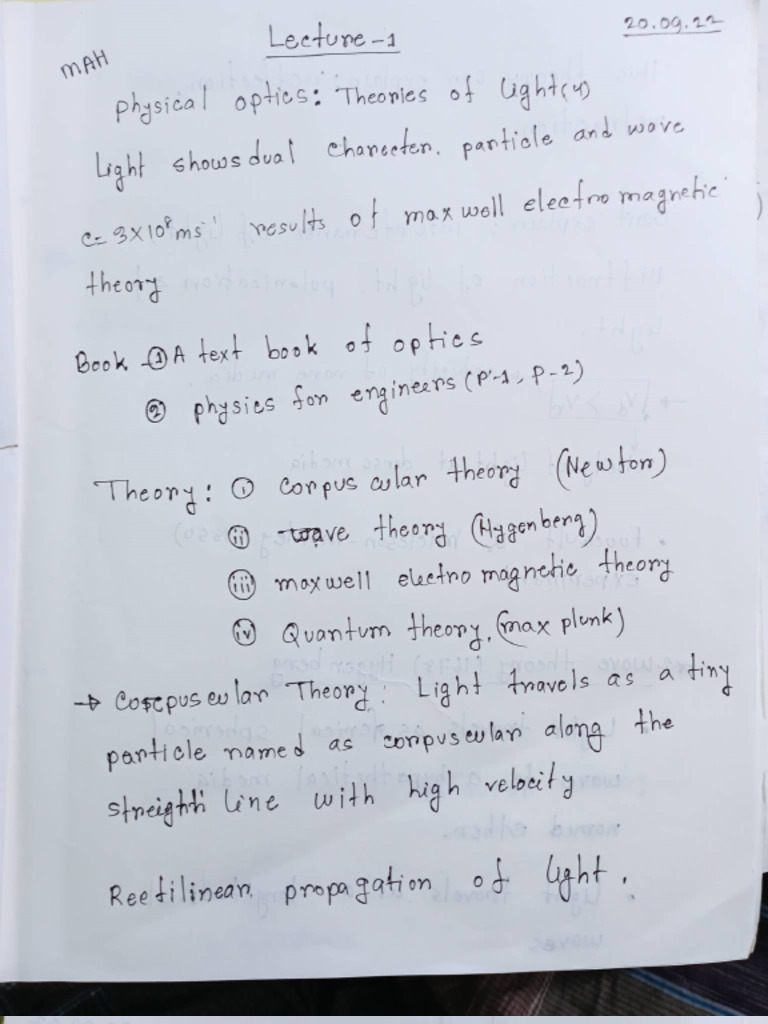 Lecture-1
20.09.22
MAH
physical optics: Theories of light(4)
Light shows dual charecter. particle and wave
c= 3×10⁸ms⁻¹ results of maxwell electro magnetic
theory
Book → ① A text book of optics
② physics for engineers (P-1, P-2)
Theory: ① corpuscular theory (Newton)
ⅱ wave theory (Hygenberg)
ⅲ maxwell electro magnetic theory
ⅳ Quantum theory, (max plunk)
→ Corpuscular Theory: Light travels as a tiny
particle named as corpuscular along the
streight line with high velocity
Rectilinear propagation of light.